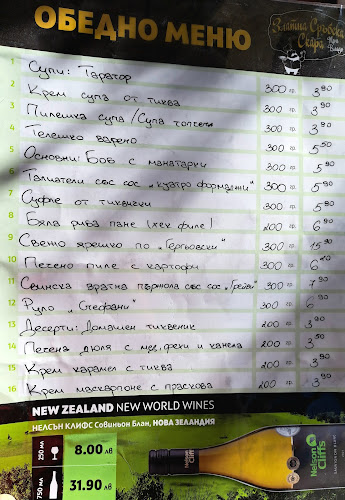 ОБЕДНО МЕНЮ
Златна Сръбска
Скара
1 Супи: Таратор 300 гр. 3.90
2 Крем супа от тиква 300 гр. 3.90
3 Пилешка супа / Супа топчета 300 гр. 3.90
4 Телешко варено 300 гр. 5.50
5 Основни: Боб с манатарки 300 гр. 5.90
6 Талиатели със сос „куатро формаджи" 300 гр. 5.90
7 Суфле от тиквички 300 гр. 5.90
8 Бяла риба пане (хек филе) 200 гр. 6.90
9 Свето ярешко по „Гергьовски" 300 гр. 15.90
10 Печено пиле с картофи 300 гр. 6.20
11 Свинска вратна пържола със сос „Грейви" 300 гр. 7.90
12 Руло „Стефани" 300 гр. 6.90
13 Десерти: Домашен тиквеник 200 гр. 3.90
14 Печена дюля с мед, орехи и канела 200 гр. 3.50
15 Крем карамел с тиква 200 гр. 3.90
16 Крем маскарпоне с праскова 200 гр. 3.90
NEW ZEALAND NEW WORLD WINES
НЕЛСЪН КЛИФС Совиньон Блан, НОВА ЗЕЛАНДИЯ
250 МЛ 8.00 лв
750 МЛ 31.90 лв
Nelson
Cliffs